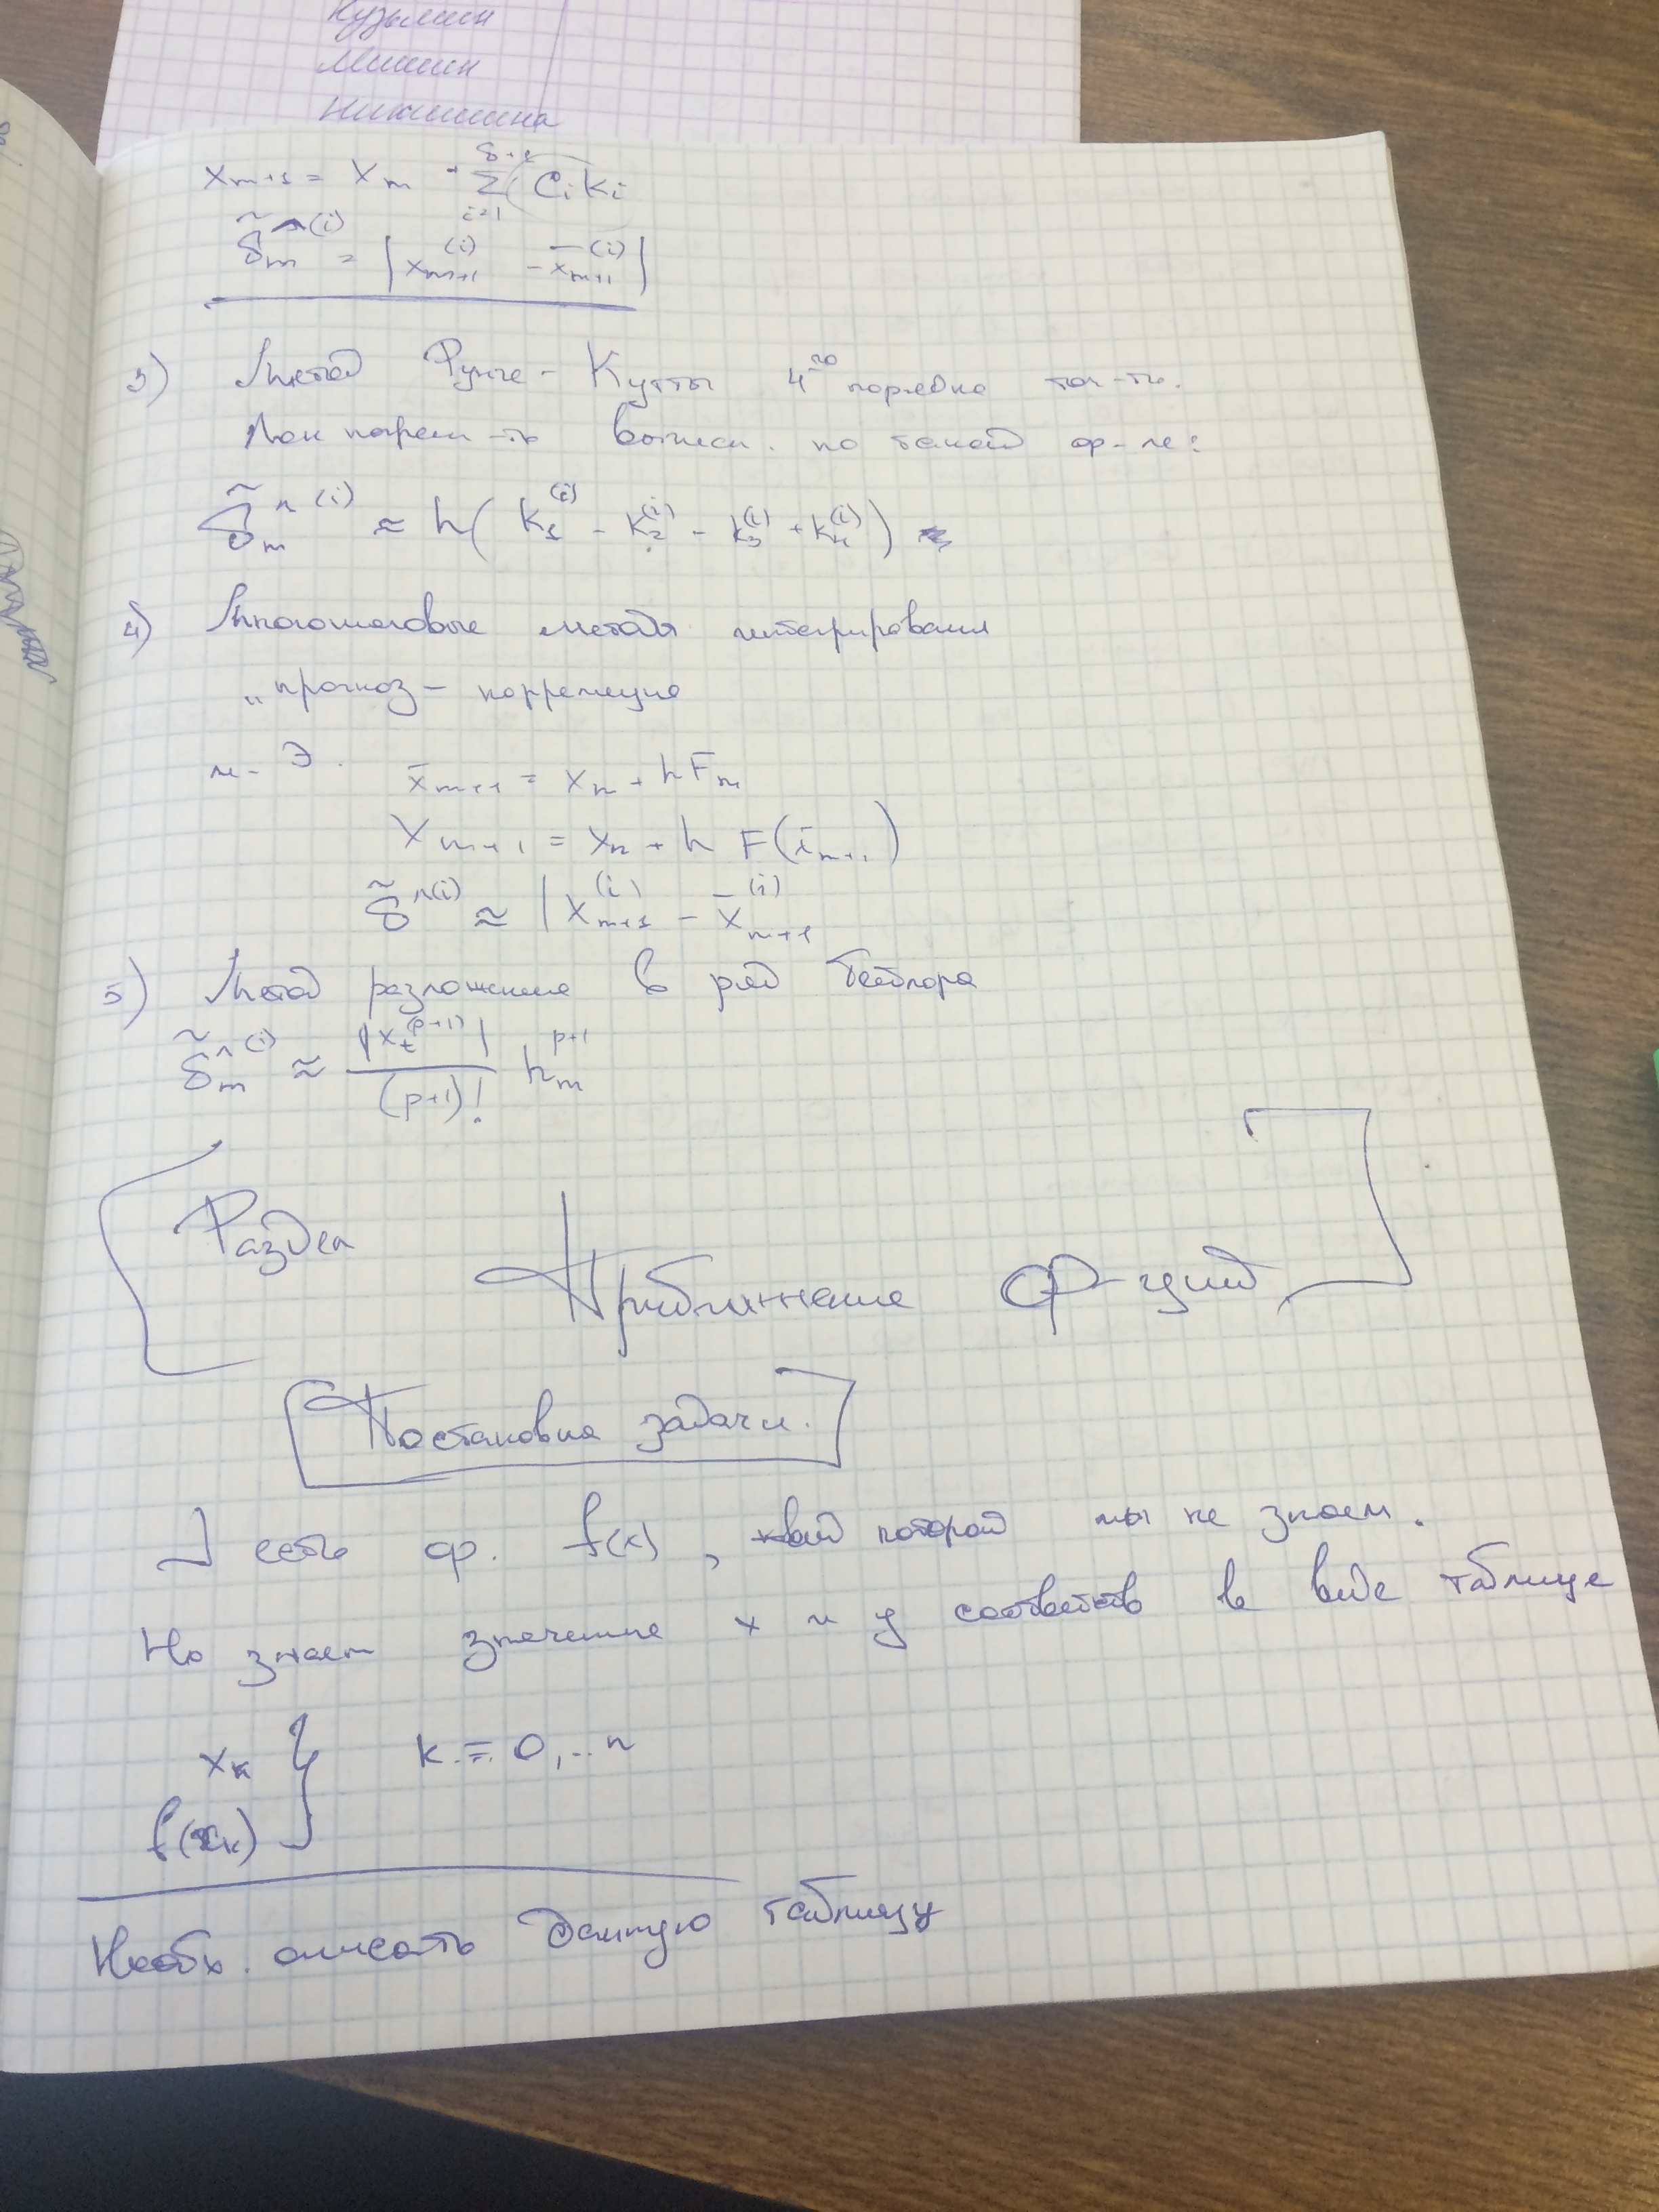 Кузьмин
Мишин
Никишина
x_{m+1} = x_m + Σ_{i=1}^{s+1} C_i K_i
δ̃_m^{л(i)} = |x_{m+1}^{(i)} - x̄_{m+1}^{(i)}|
3) Метод Рунге-Кутты 4-го порядка точ-ти.
Лок погреш-ть вычисл. по такой ф-ле:
δ̃_m^{л(i)} ≈ h(k_1^{(i)} - k_2^{(i)} - k_3^{(i)} + k_4^{(i)})
4) Многошаговые методы интегрирования
„прогноз - коррекция
м-Э. x̄_{m+1} = x_m + hF_m
x_{m+1} = x_m + h F(x̄_{m+1})
δ̃^{л(i)} ≈ |x_{m+1}^{(i)} - x̄_{m+1}^{(i)}
5) Метод разложения в ряд Тейлора
δ̃_m^{л(i)} ≈ |x_t^{(p+1)}| / (p+1)! h_m^{p+1}
Раздел
Приближение ф-ций
Постановка задачи.
] есть ф. f(x), вид которой мы не знаем.
Но знаем значение x и y соответств в виде таблице
x_k } k = 0,..n
f(x_k)
Необх. описать данную таблицу